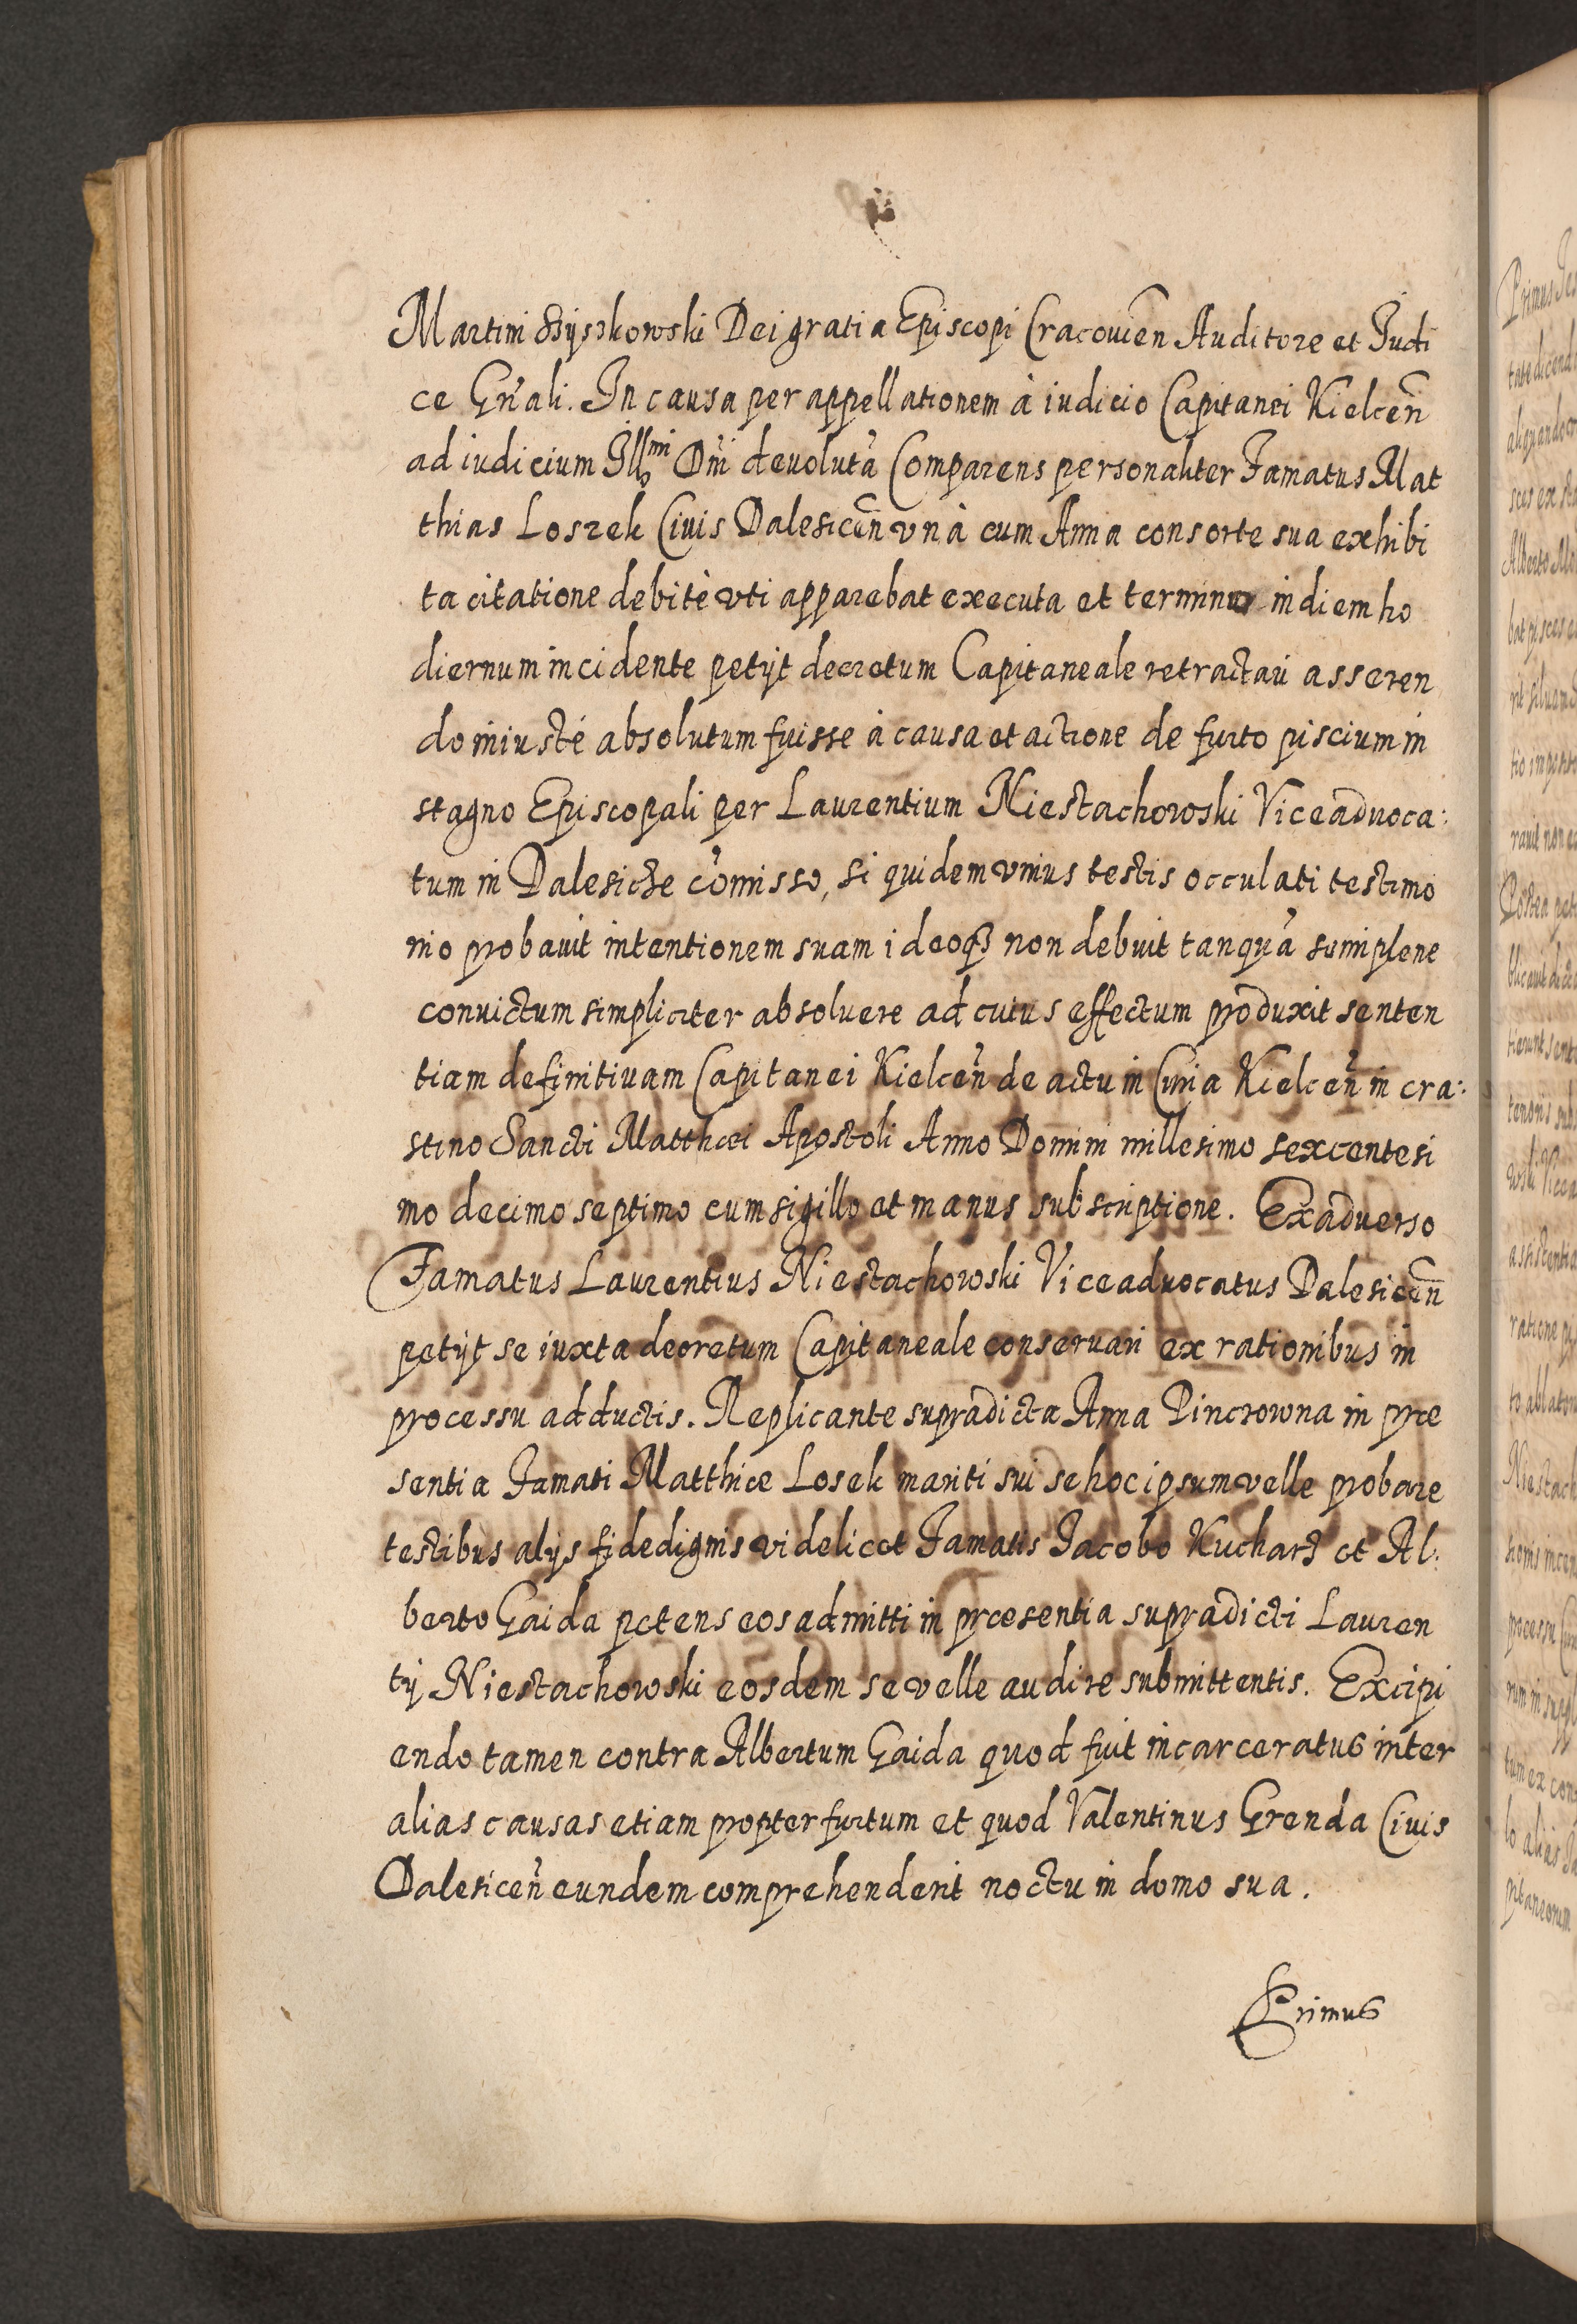 Martini Szyszkowski Dei gratia Episcopi Cracouien̄ Auditore et Judi
ce Gn̄ali. In causa per appellationem à iudicio Capitanei Kielcen̄
ad iudicium Illmi Dn̄i deuolutā Comparens personaliter Famatus Mat
thias Loszek Ciuis Dalesicen̄ vnà cum Anna consorte sua exhibi
ta citatione debitè vti apparebat executa et termino in diem ho
diernum incidente petÿt decretum Capitaneale retractari asseren
do iniusté absolutum fuisse à causa et actione de furto piscium in
stagno Episcopali per Laurentium Niestachowski Viceaduoca:
tum in Dalesicze cōmisso, si quidem vnius testis occulati testimo
nio probauit intentionem suam ideoqꝫ non debuit tanquā semiplene
conuictum simpliciter absoluere ad cuius effectum produxit senten
tiam definitiuam Capitanei Kielcen̄ de actu in Curia Kielcen̄ in cra:
stino Sancti Matthæi Apostoli Anno Domini millesimo sexcentesi
mo decimo septimo cum sigillo et manus subscriptione. Ex aduerso
Famatus Laurentius Niestachowski Viceaduocatus Dalesicen̄
petÿt se iuxta decretum Capitaneale conseruari ex rationibus in
processu adductis. Replicante supradicta Anna Pincrowna in præ
sentia Famati Matthiæ Losek mariti sui se hoc ipsum velle probare
testibus alÿs fidedignis videlicet Famatis Jacobo Kucharz et Al:
berto Gaida petens eos admitti in præsentia supradicti Lauren
tÿ Niestachowski eosdem se velle audire submittentis. Excipi
endo tamen contra Albertum Gaida quod fuit incarceratus inter
alias causas etiam propter furtum et quod Valentinus Grenda Ciuis
Dalesicen̄ eundem comprehenderit noctu in domo sua.
Primus